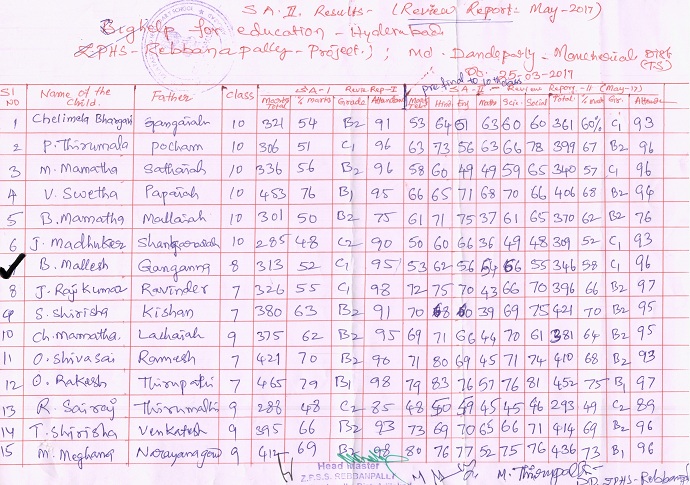 SA-II. Results- (Review Report: May-2017)
Bighelp for education - Hyderabad.
ZPHS-Rebbanapally-Project.); Md. Dandepally - Mancherial, Dist (TS)
Dt. 25-03-2017
Sl NO Name of the Child. Father Class SA-I Revw Rep-I SA-II- Review Report-II (May-17)
Marks Total % Marks Grade Attendance Hindi Eng Maths Scie. Social Total % Mark Gr. Attend
1 Chelimela Bhargavi Gangaiah 10 321 54 B2 91 53 64 51 63 60 60 361 60% C1 93
2 P. Thirumala Pocham 10 306 51 C1 96 63 73 56 63 66 78 399 67 B2 96
3 M. Mamatha Sathaiah 10 336 56 B2 96 58 60 49 49 59 65 340 57 C1 96
4 V. Swetha Papaiah 10 453 76 B1 95 66 65 71 68 70 66 406 68 B2 94
5 B. Mamatha Mallaiah 10 301 50 B2 75 61 71 75 37 61 65 370 62 B2 76
6 J. Madhukar 10 285 48 C2 90 50 60 66 36 49 48 309 52 C1 93
B. Mallesh Ganganna 8 313 52 C1 95 53 62 56 54 66 55 346 58 C1 96
8 J. Raj Kumar Ravinder 7 326 55 C1 98 72 75 70 43 66 70 396 66 B2 97
9 S. Shirisha Kishan 7 380 63 B2 91 70 68 60 39 69 75 421 70 B2 95
10 Ch. Mamatha. Lachaiah 9 375 62 B2 95 69 71 66 44 70 61 381 64 B2 95
11 O. Shivasai Ramesh 7 421 70 B2 96 71 80 69 45 71 74 410 68 B2 93
12 O. Rakesh Thirupathi 7 465 79 B1 98 79 83 76 57 76 81 452 75 B1 97
13 R. Sairaj Thirumalli 9 288 48 C2 85 48 60 49 45 45 46 293 49 C2 89
14 T. Shirisha Venkatesh 9 395 66 B2 93 73 69 70 65 66 71 414 69 B2 96
15 M. Meghana Narayanagoud 9 412 69 B2 98 80 76 77 52 75 76 436 73 B1 96
Head Master
Z.P.S.S. REBBANPALLI
M. Thirupathi
ZPHS-Rebbanapally